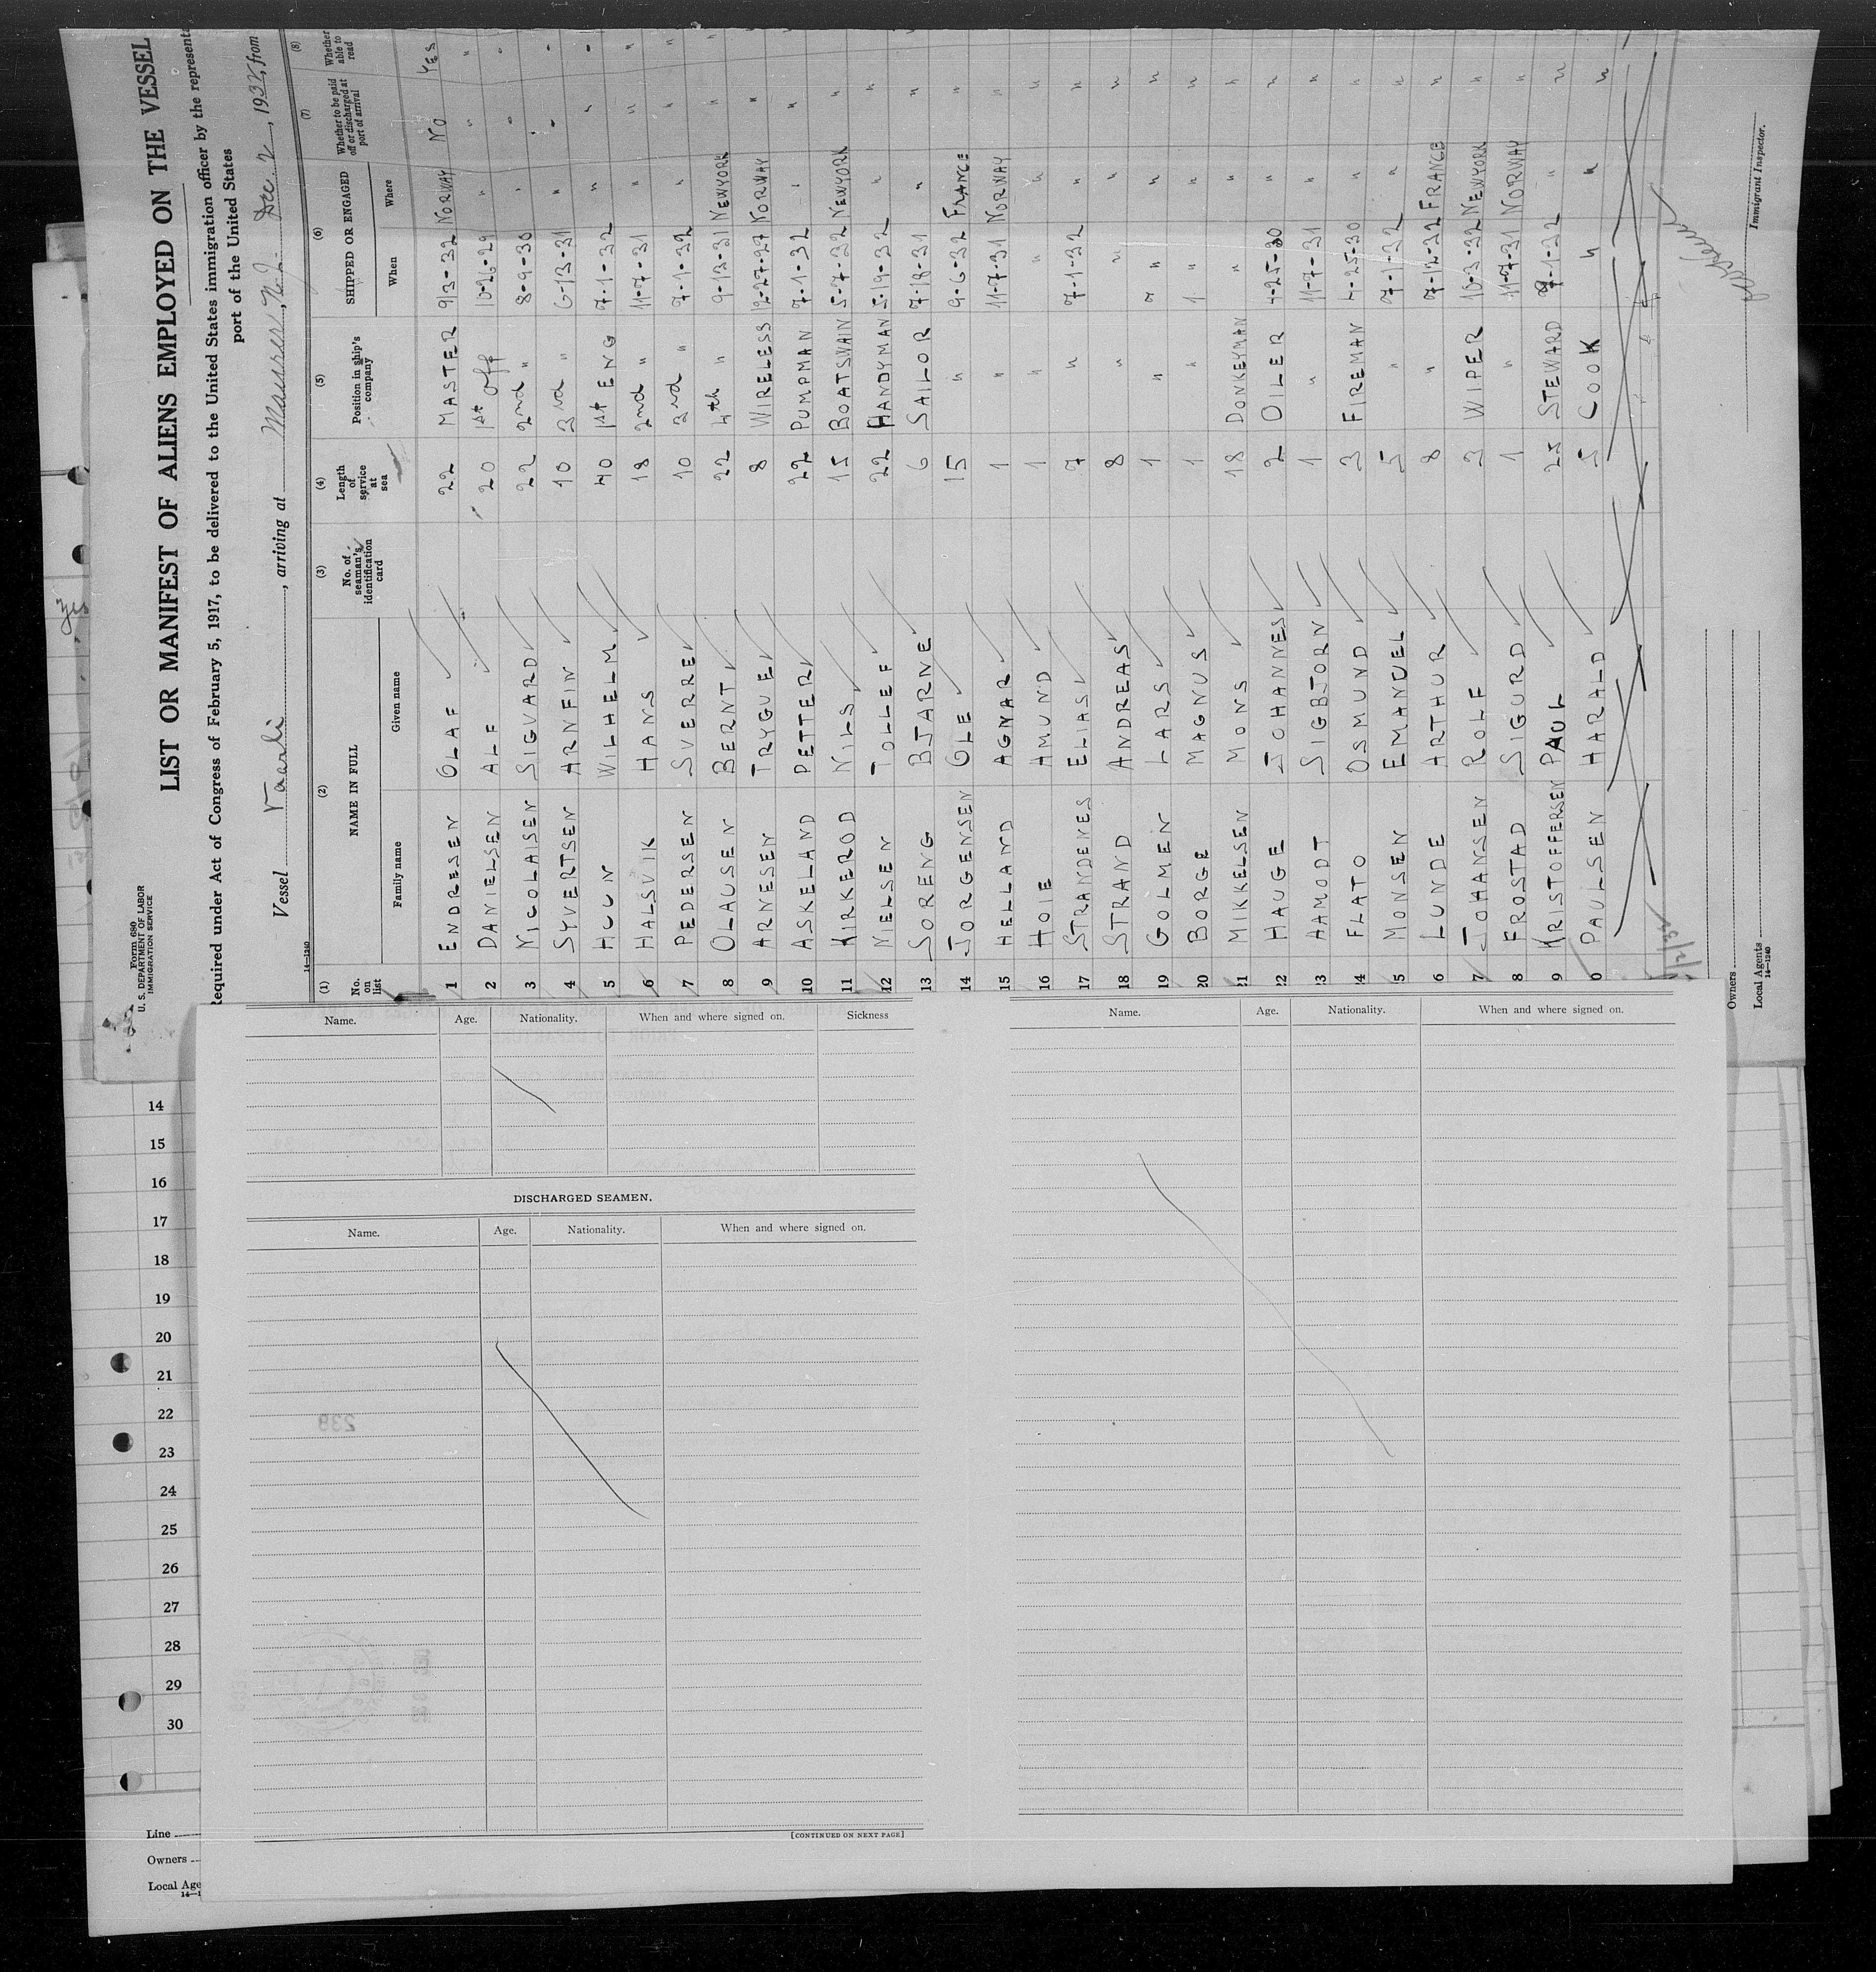 Form 680
U. S. DEPARTMENT OF LABOR
IMMIGRATION SERVICE
LIST OR MANIFEST OF ALIENS EMPLOYED ON THE VESSEL
Required under Act of Congress of February 5, 1917, to be delivered to the United States immigration officer by the representa
port of the United States
Vessel Vaarli, arriving at Maurer, N.J. Dec. 2, 1932, from
14-1240
(1) (2) (3) (4) (5) (6) (7) (8)
No. on list NAME IN FULL No. of seaman's identification card Length of service at sea Position in ship's company SHIPPED OR ENGAGED Whether to be paid off or discharged at port of arrival Whether able to read
Family name Given name When Where
1 ENDRESEN OLAF 22 MASTER 9-3-32 NORWAY NO YES
2 DANIELSEN ALF 20 1st Off 10-26-29 " " "
3 NICOLAISEN SIGVARD 22 2nd " 8-9-30 " " "
4 SYVERTSEN ARNFIN 10 3rd " 6-13-31 " " "
5 HUUN WILHELM 40 1st ENG 7-1-32 " " "
6 HALSVIK HANS 18 2nd " 11-7-31 " " "
7 PEDERSEN SVERRE 10 3rd " 7-1-32 " " "
8 OLAUSEN BERNT 22 4th " 9-13-31 NEWYORK " "
9 ARNESEN TRYGVE 8 WIRELESS 12-27-27 NORWAY " "
10 ASKELAND PETTER 22 PUMPMAN 7-1-32 " " "
11 KIRKEROD NILS 15 BOATSWAIN 5-7-32 NEWYORK "
12 NIELSEN TOLLEF 22 HANDYMAN 5-19-32 " "
13 SORENG BJARNE 6 SAILOR 7-18-31 " "
14 JORGENSEN OLE 15 " 9-6-32 FRANCE "
15 HELLAND AGNAR 1 " 11-7-31 NORWAY "
16 HOIE AMUND 1 " " " "
17 STRANDENES ELIAS 7 " 7-1-32 " "
18 STRAND ANDREAS 8 " " " "
19 GOLMEN LARS 1 " " " "
20 BORGE MAGNUS 1 " " " "
21 MIKKELSEN MONS 18 DONKEYMAN " " "
22 HAUGE JOHANNES 2 OILER 4-25-30 " "
3 AAMODT SIGBJORN 1 " 11-7-31 " "
4 FLATO OSMUND 3 FIREMAN 4-25-30 " "
5 MONSEN EMANUEL 5 " 7-1-32 " "
6 LUNDE ARTHUR 8 " 7-12-32 FRANCE "
7 JOHANSEN ROLF 3 WIPER 10-3-32 NEWYORK "
8 FROSTAD SIGURD 1 " 11-7-31 NORWAY "
9 KRISTOFFERSEN PAUL 25 STEWARD 9-1-32 " "
0 PAULSEN HARALD 5 COOK " " "
Immigrant Inspector.
Owners
Local Agents
14-1240
Yes
Name. Age. Nationality. When and where signed on. Sickness
DISCHARGED SEAMEN.
Name. Age. Nationality. When and where signed on.
239
[CONTINUED ON NEXT PAGE]
Name. Age. Nationality. When and where signed on.
14
15
16
17
18
19
20
21
22
23
24
25
26
27
28
29
30
Line
Owners
Local Age
14-1